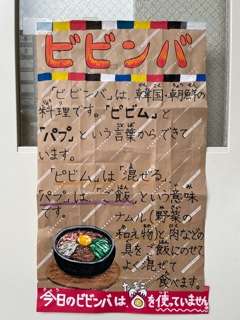 ビビンバ
「ビビンバ」は、韓国・朝鮮の
料理です。「ピビム」と
「パプ」という言葉からできて
います。
「ピビム」は「混ぜる」
「パプ」は「ご飯」という意味
です。
ナムル(野菜の
和え物)と肉などの
具をご飯にのせて
よく混ぜて
食べます。
今日のビビンバは、を使っていません